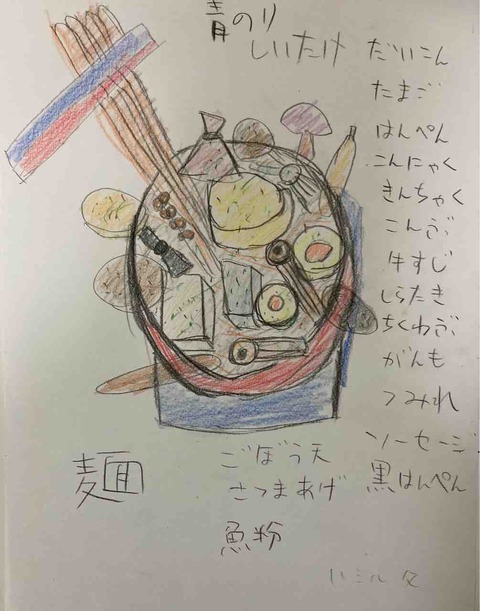 青のり
しいたけ
だいこん
たまご
はんぺん
こんにゃく
きんちゃく
こんぶ
牛すじ
しらたき
ちくわぶ
がんも
つみれ
ソーセージ
黒はんぺん
ごぼう天
さつまあげ
魚粉
麺